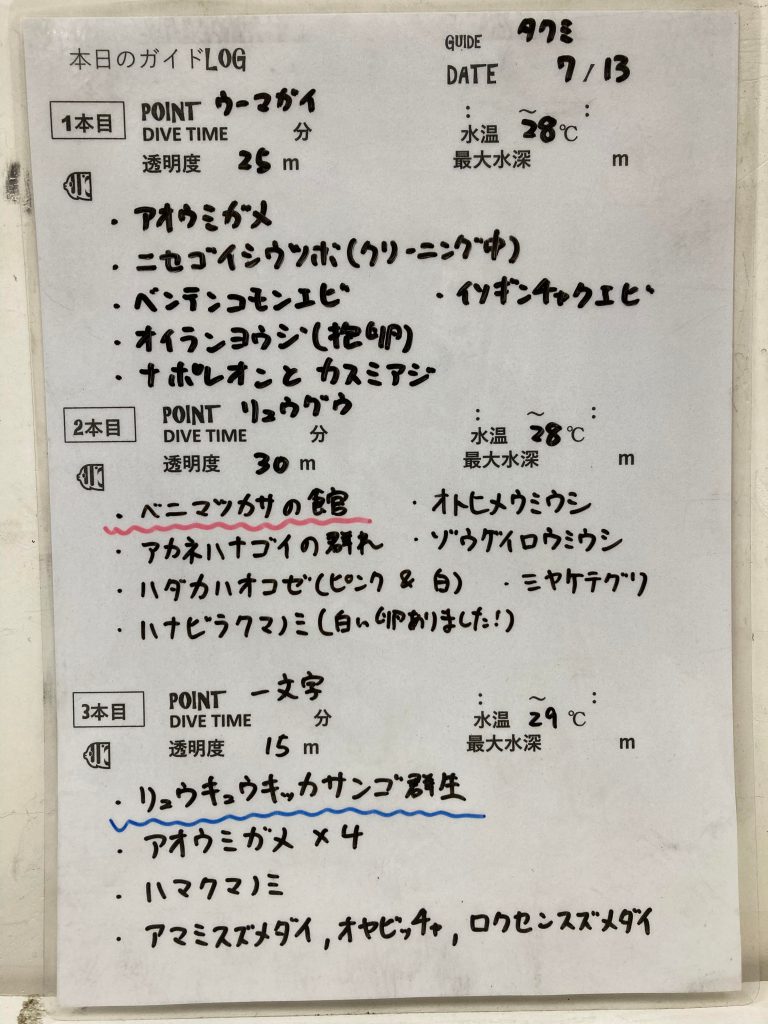 本日のガイドLOG
GUIDE タクミ
DATE 7/13
1本目
POINT ウーマガイ
: ～ :
DIVE TIME 分
水温 28℃
透明度 25 m
最大水深 m
・アオウミガメ
・ニセゴイシウツボ(クリーニング中)
・ベンテンコモンエビ ・イソギンチャクエビ
・オイランヨウジ(抱卵)
・ナポレオンと カスミアジ
2本目
POINT リュウグウ
: ～ :
DIVE TIME 分
水温 28℃
透明度 30 m
最大水深 m
・ベニマツカサの館 ・オトヒメウミウシ
・アカネハナゴイの群れ ・ゾウゲイロウミウシ
・ハダカハオコゼ(ピンク & 白) ・ミヤケテグリ
・ハナビラクマノミ(白い卵ありました!)
3本目
POINT 一文字
: ～ :
DIVE TIME 分
水温 29℃
透明度 15 m
最大水深 m
・リュウキュウキッカサンゴ群生
・アオウミガメ ×4
・ハマクマノミ
・アマミスズメダイ,オヤビッチャ,ロクセンスズメダイ